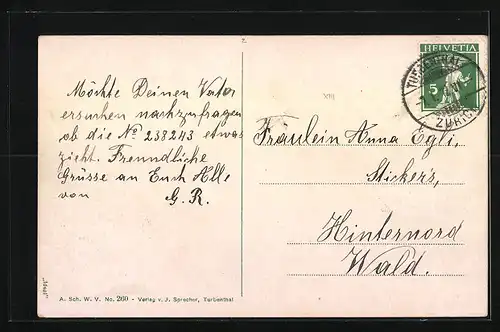 HELVETIA
5
Möchte Deinen Vater
ersuchen nachzufragen
ob die No 238243 etwas
zieht. Freundliche
Grüsse an Euch Alle
von G. R.
Fräulein Anna Egli,
Sticker's,
Hinternord
Wald.
"Ideal"
A. Sch. W. V. No. 260 - Verlag v. J. Sprecher, Turbenthal.